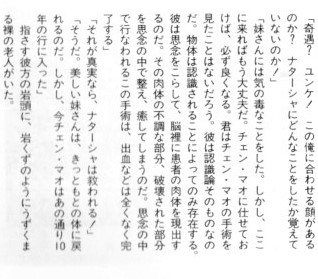 「奇遇？　ユンケ！　この俺に合わせる顔がある
のか？　ナターシャにどんなことをしたか覚えて
いないのか！」
「妹さんには気の毒なことをした。しかし、ここ
に来ればもう大丈夫だ。チェン・マオに任せてお
けば、必ず良くなる。君はチェン・マオの手術を
見たことはないだろう。彼は認識論そのものなの
だ。物体は認識されることによってのみ存在する。
彼は思念をこらして、脳裡に患者の肉体を現出す
るのだ。その肉体の不調な部分、破壊された部分
を思念の中で整え、癒してしまうのだ。思念の中
で行なわれるこの手術は、出血などは全くなく完
了する」
「それが真実なら、ナターシャは救われる！」
「そうだ。美しい妹さんは、きっともとの体に戻
れるのだ。しかし、今チェン・マオはあの通り10
年の行に入った」
　指さす彼方の岩頭に、岩くずのようにうずくま
る裸の老人がいた。